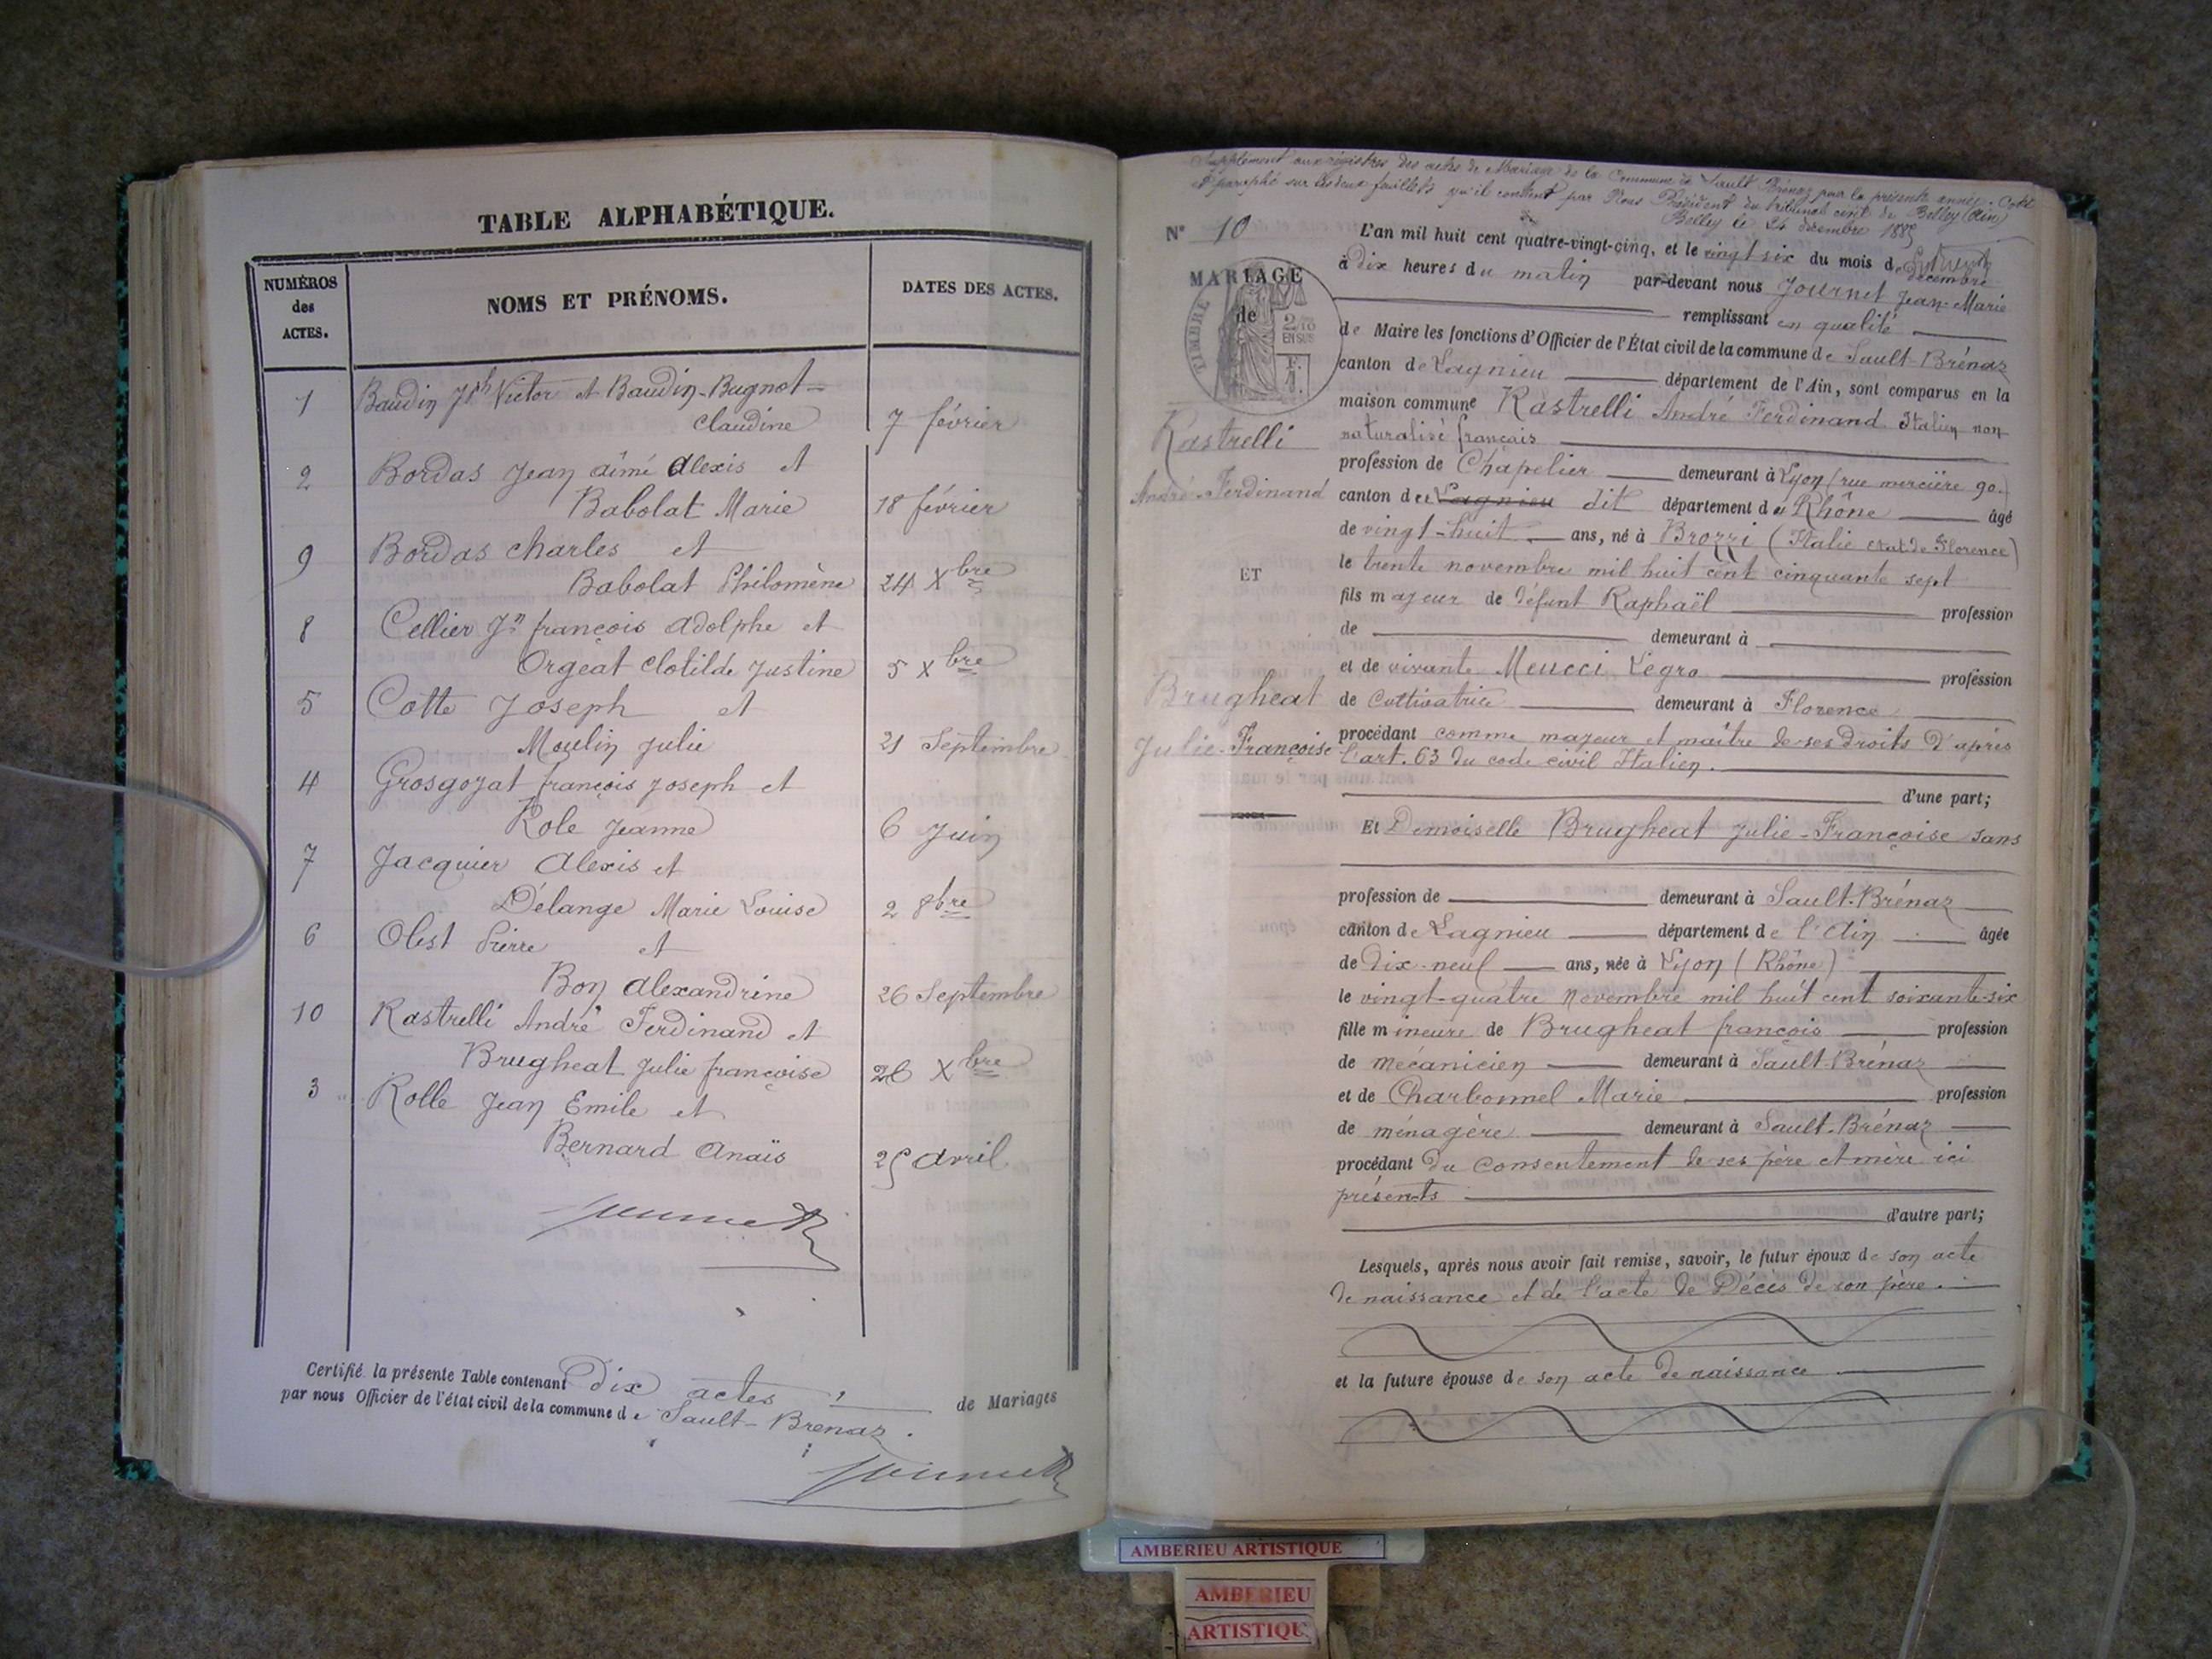 TABLE ALPHABÉTIQUE.
NUMÉROS
des
ACTES.
NOMS ET PRÉNOMS.
DATES DES ACTES.
1 Baudin Jph Victor et Baudin-Bugnot-
Claudine 7 février
2 Bordas Jean aimé Alexis et
Babolat Marie 18 février
9 Bordas Charles et
Babolat Philomène 24 Xbre
8 Cellier Jn françois Adolphe et
Orgeat Clotilde Justine 5 Xbre
5 Cotte Joseph et
Moulin Julie 21 Septembre
4 Grosgojat françois Joseph et
Role Jeanne 6 Juin
7 Jacquier Alexis et
Délange Marie Louise 2 8bre
6 Obst Pierre et
Bon Alexandrine 26 Septembre
10 Rastrelli André Ferdinand et
Brugheat Julie françoise 26 Xbre
3 Rolle Jean Emile et
Bernard Anaïs 25 Avril
Certifié la présente Table contenant Dix actes de Mariages
par nous Officier de l'état civil de la commune de Sault-Brenaz.
Supplément aux régistres des actes de Mariage de la Commune de Sault Brénaz pour la présente année. Coté
et paraphé sur les deux feuillets qu'il contient par Nous Président du tribunal civil de Belley (Ain)
Belley le 24 décembre 1885
N° 10
L'an mil huit cent quatre-vingt-cinq, et le vingt six du mois de
décembre
MARIAGE
à dix heures du matin par-devant nous Journet Jean-Marie
TIMBRE
de
2/10
EN SUS
remplissant en qualité
de Maire les fonctions d'Officier de l'État civil de la commune de Sault-Brénaz
canton de Lagnieu département de l'Ain, sont comparus en la
maison commune Rastrelli André Ferdinand Italien non
Rastrelli
naturalisé français
profession de Chapelier demeurant à Lyon (rue mercière 90.)
André-Ferdinand
canton de Lagnieu dit département du Rhône âgé
de vingt-huit ans, né à Brozzi (Italie état de Florence)
ET
le trente novembre mil huit cent cinquante sept
fils majeur de défunt Raphaël profession
de demeurant à
et de vivante Meucci Legro profession
Brugheat
de Cultivatrice demeurant à Florence
Julie-Françoise
procédant comme majeur et maître de ses droits d'après
l'art. 63 du code civil Italien.
d'une part;
Et Demoiselle Brugheat Julie-Françoise sans
profession de demeurant à Sault-Brénaz
canton de Lagnieu département de l'Ain âgée
de dix-neuf ans, née à Lyon (Rhône)
le vingt-quatre novembre mil huit cent soixante-six
fille mineure de Brugheat françois profession
de mécanicien demeurant à Sault-Brénaz
et de Charbonnel Marie profession
de ménagère demeurant à Sault-Brénaz
procédant du consentement de ses père et mère ici
présents
d'autre part;
Lesquels, après nous avoir fait remise, savoir, le futur époux de son acte
de naissance et de l'acte de Décès de son père.
et la future épouse de son acte de naissance
AMBERIEU ARTISTIQUE
AMBERIEU
ARTISTIQU